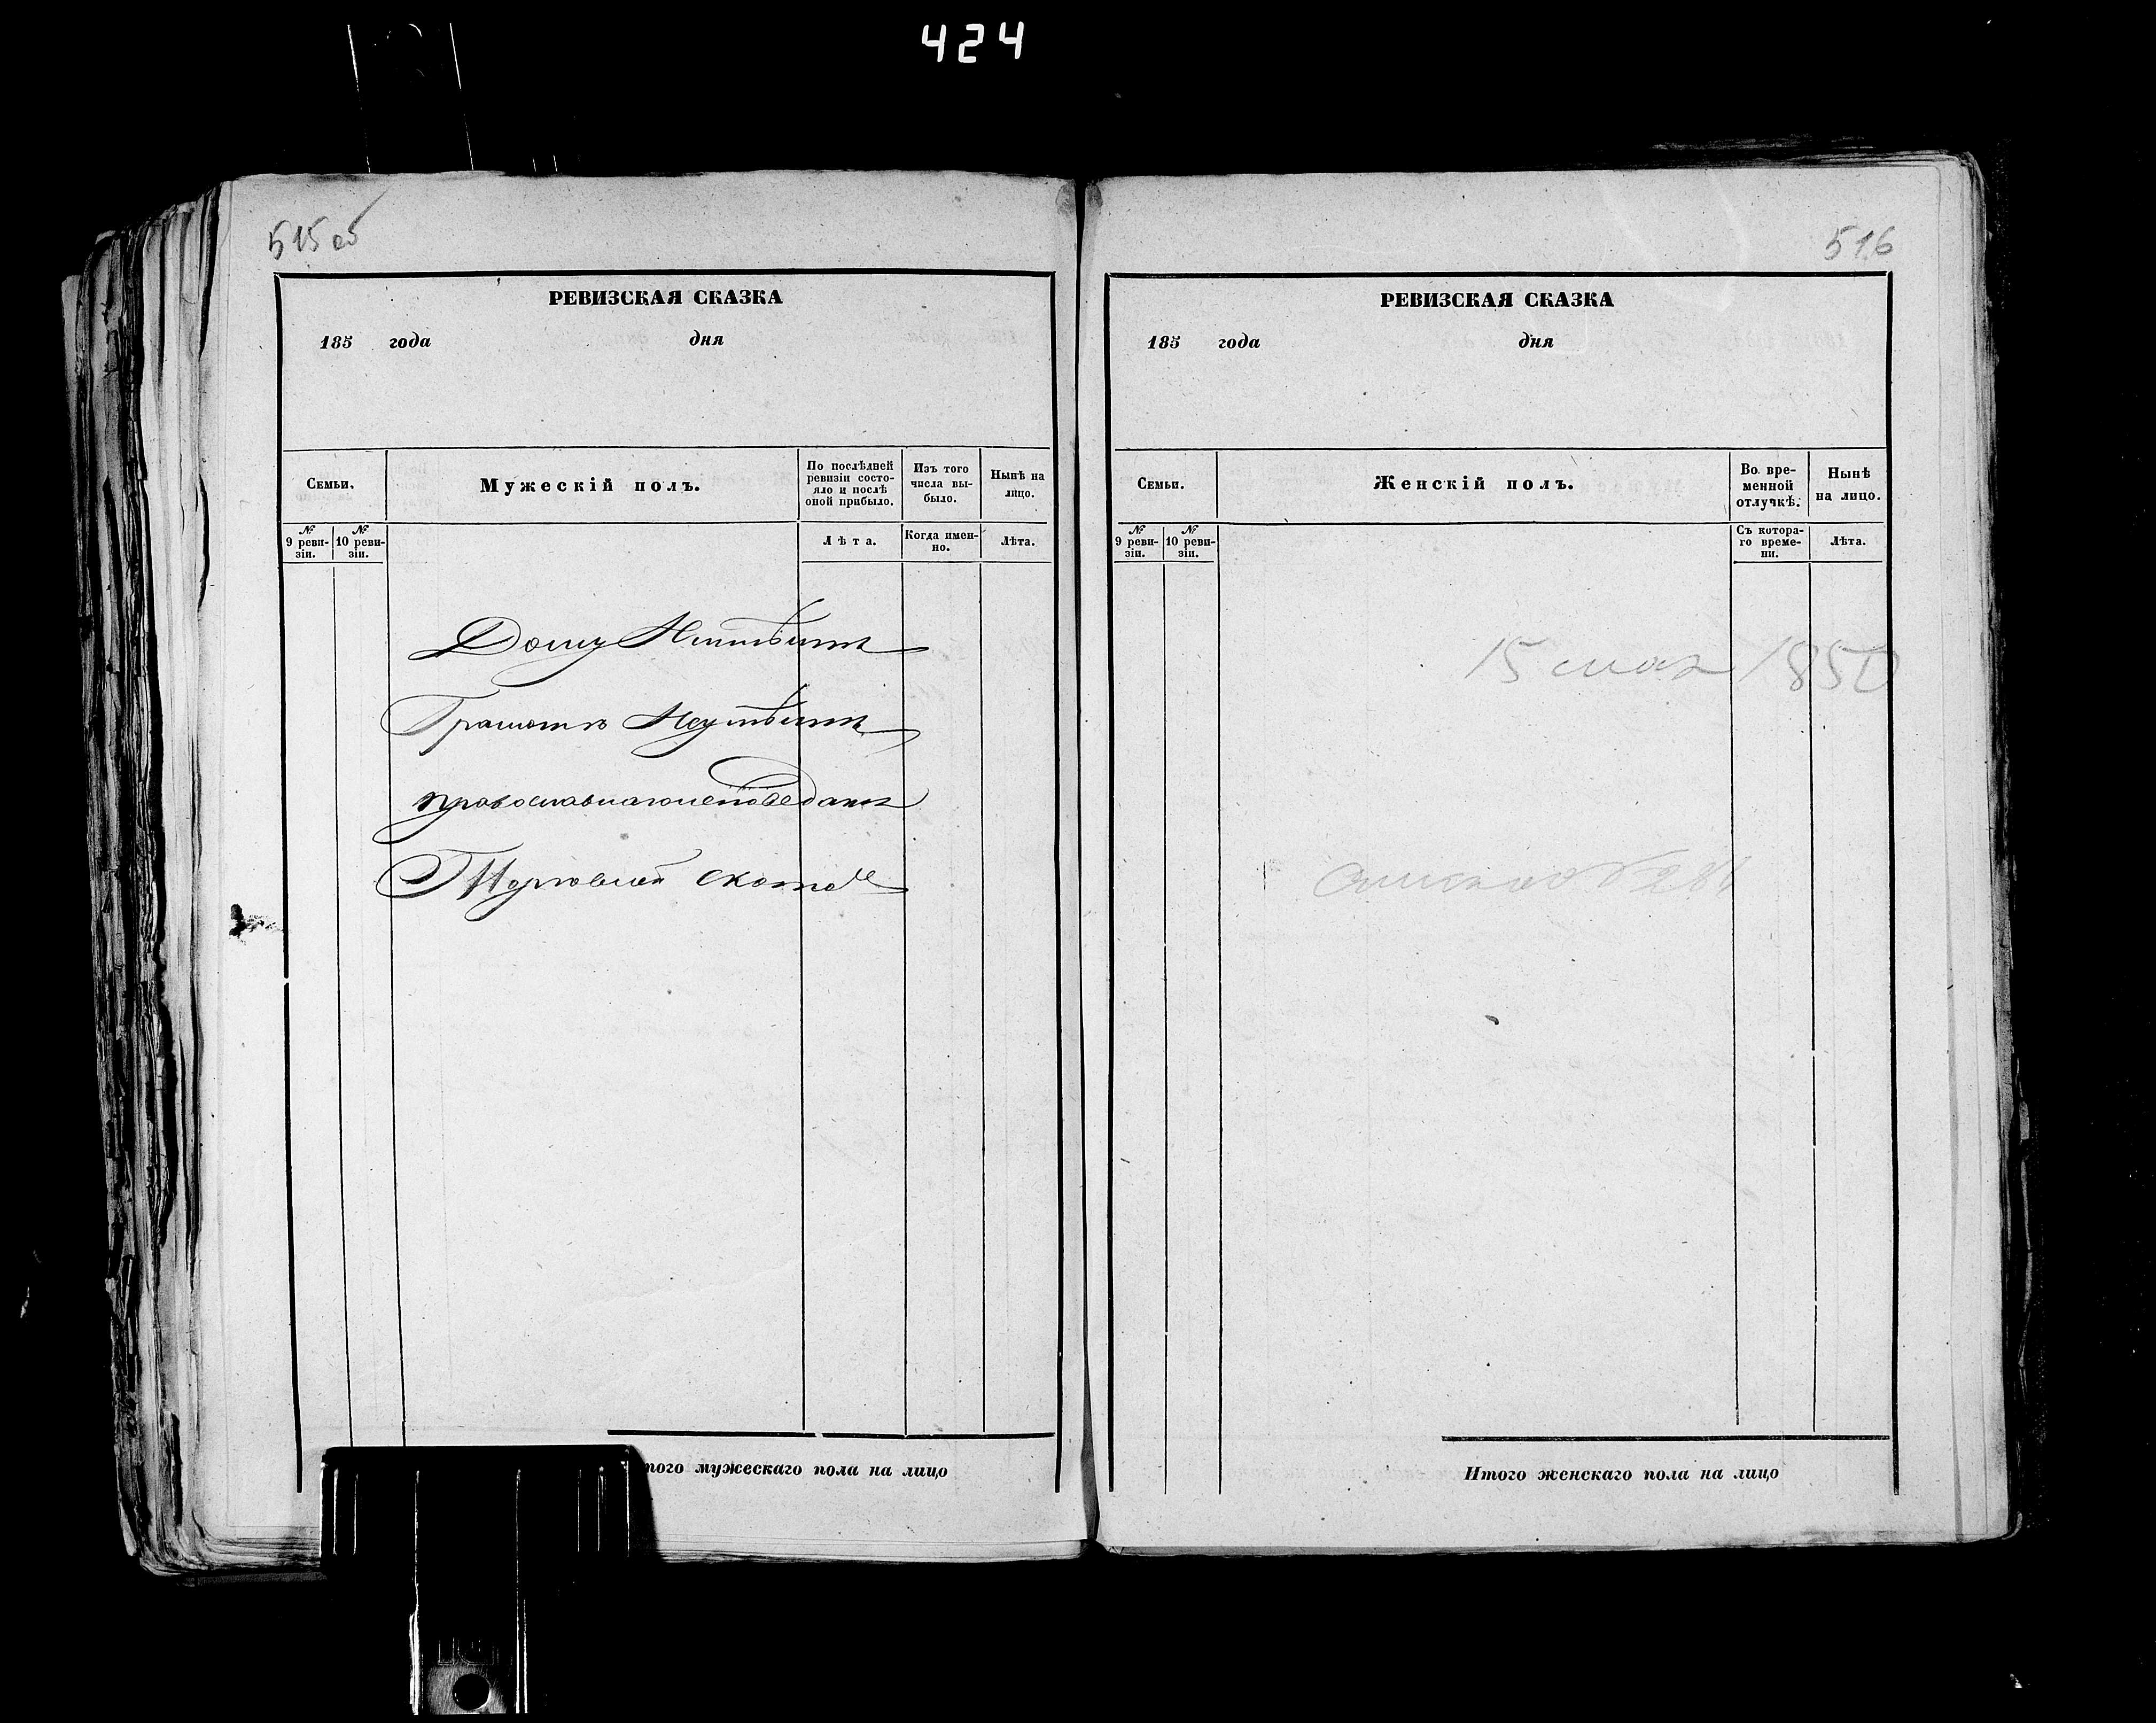 424
515 об
РЕВИЗСКАЯ СКАЗКА
185 года дня
Семьи.
Мужескій полъ.
По послѣдней ревизіи состо-
яло и послѣ оной прибыло.
Изъ того числа вы-
было.
Нынѣ на лицо.
№ 9 реви-
зіи.
№ 10 реви-
зіи.
Лѣта.
Когда имен-
но.
Лѣта.
Дому
Грамоте
православнаго исповеданя
скотом
того мужескаго пола на лицо
516
РЕВИЗСКАЯ СКАЗКА
185 года дня
Семьи.
Женскій полъ.
Во вре-
менной
отлучкѣ.
Нынѣ
на лицо.
№ 9 реви-
зіи.
№ 10 реви-
зіи.
Съ котора-
го време-
ни.
Лѣта.
15 мая 1850
Итого женскаго пола на лицо